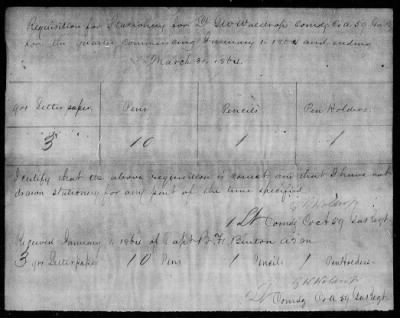 Requisition for Stationery for Lt Comdg Co A
for the quarter commencing January 1, 1864 and ending
March 31, 1864.
qrs Letter paper. Pens Pencils Pen Holders.
3 10 1 1
I certify that the above requisition is correct and that I have not
drawn stationery for any part of the time specified.
1 Lt Comdg Co A 59 Regt
Received January 1, 1864 of Capt B. F. A.Q.M
3 qrs Letter paper 10 Pens 1 Pencils 1 PenHolders
Lt Comdg Co A 59 Regt